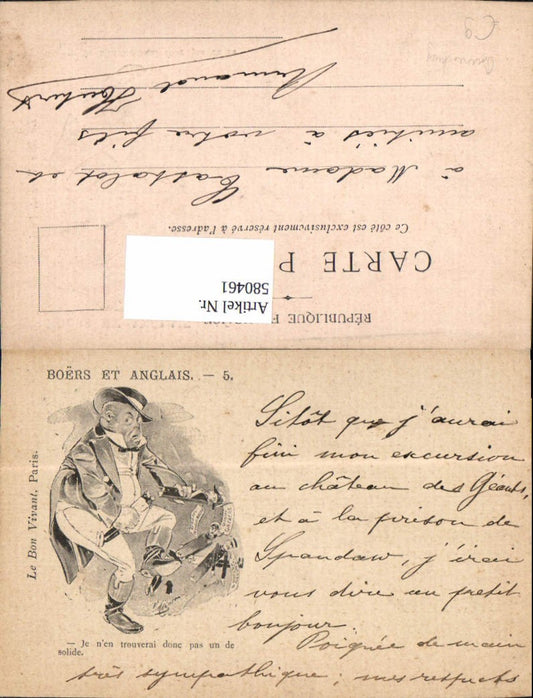 C9
RÉPUBLIQUE F
CARTE P
Ce côté est exclusivement réservé à l'adresse.
Artikel Nr.
580461
à Madame et
amitiés à votre fils
Armand
BOËRS ET ANGLAIS. — 5.
Le Bon Vivant, Paris.
— Je n'en trouverai donc pas un de
solide.
Sitôt que j'aurai
fini mon excursion
au château des Géants,
et à la prison de
Spandaw, j'irai
vous dire un petit
bonjour.
Poignée de main
très sympathique; mes respects